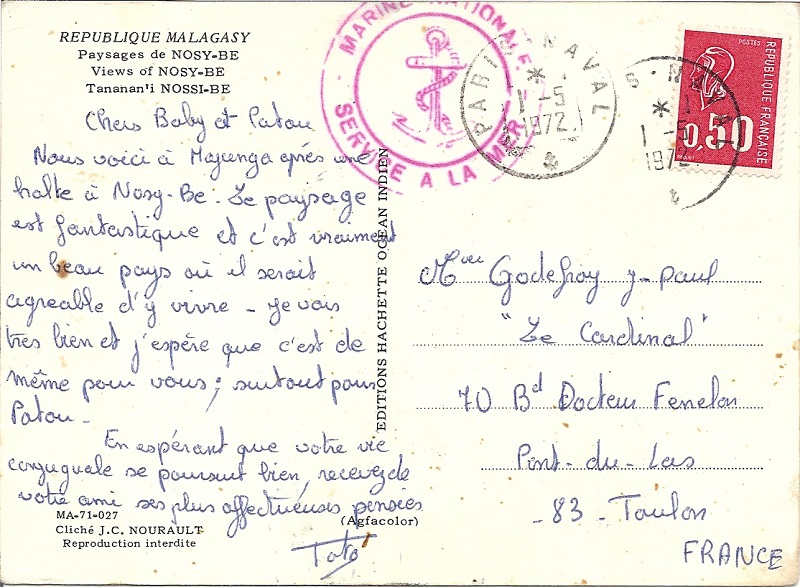 REPUBLIQUE MALAGASY
Paysages de NOSY-BE
Views of NOSY-BE
Tananan'i NOSSI-BE
Chers Baby et Patou
Nous voici à Majunga après une
halte à Nosy-Be. Le paysage
est fantastique et c'est vraiment
un beau pays où il serait
agréable d'y vivre - Je vais
très bien et j'espère que c'est de
même pour vous; surtout pour
Patou -
En espérant que votre vie
conjuguale se poursuit bien, recevez de
votre ami ses plus affectueuses pensées
Toto
MA-71-027
Cliché J.C. NOURAULT
Reproduction interdite
(Agfacolor)
EDITIONS HACHETTE OCEAN INDIEN
MARINE NATIONALE
SERVICE A LA MER
PARIS NAVAL
* 1-5 1972 *
S. NAVAL
* 1-5 1972
POSTES
REPUBLIQUE FRANÇAISE
0,50
Godefroy J-paul
"Le Cardinal"
70 Bd Docteur Fenelon
Pont-du-Las
-83- Toulon
FRANCE